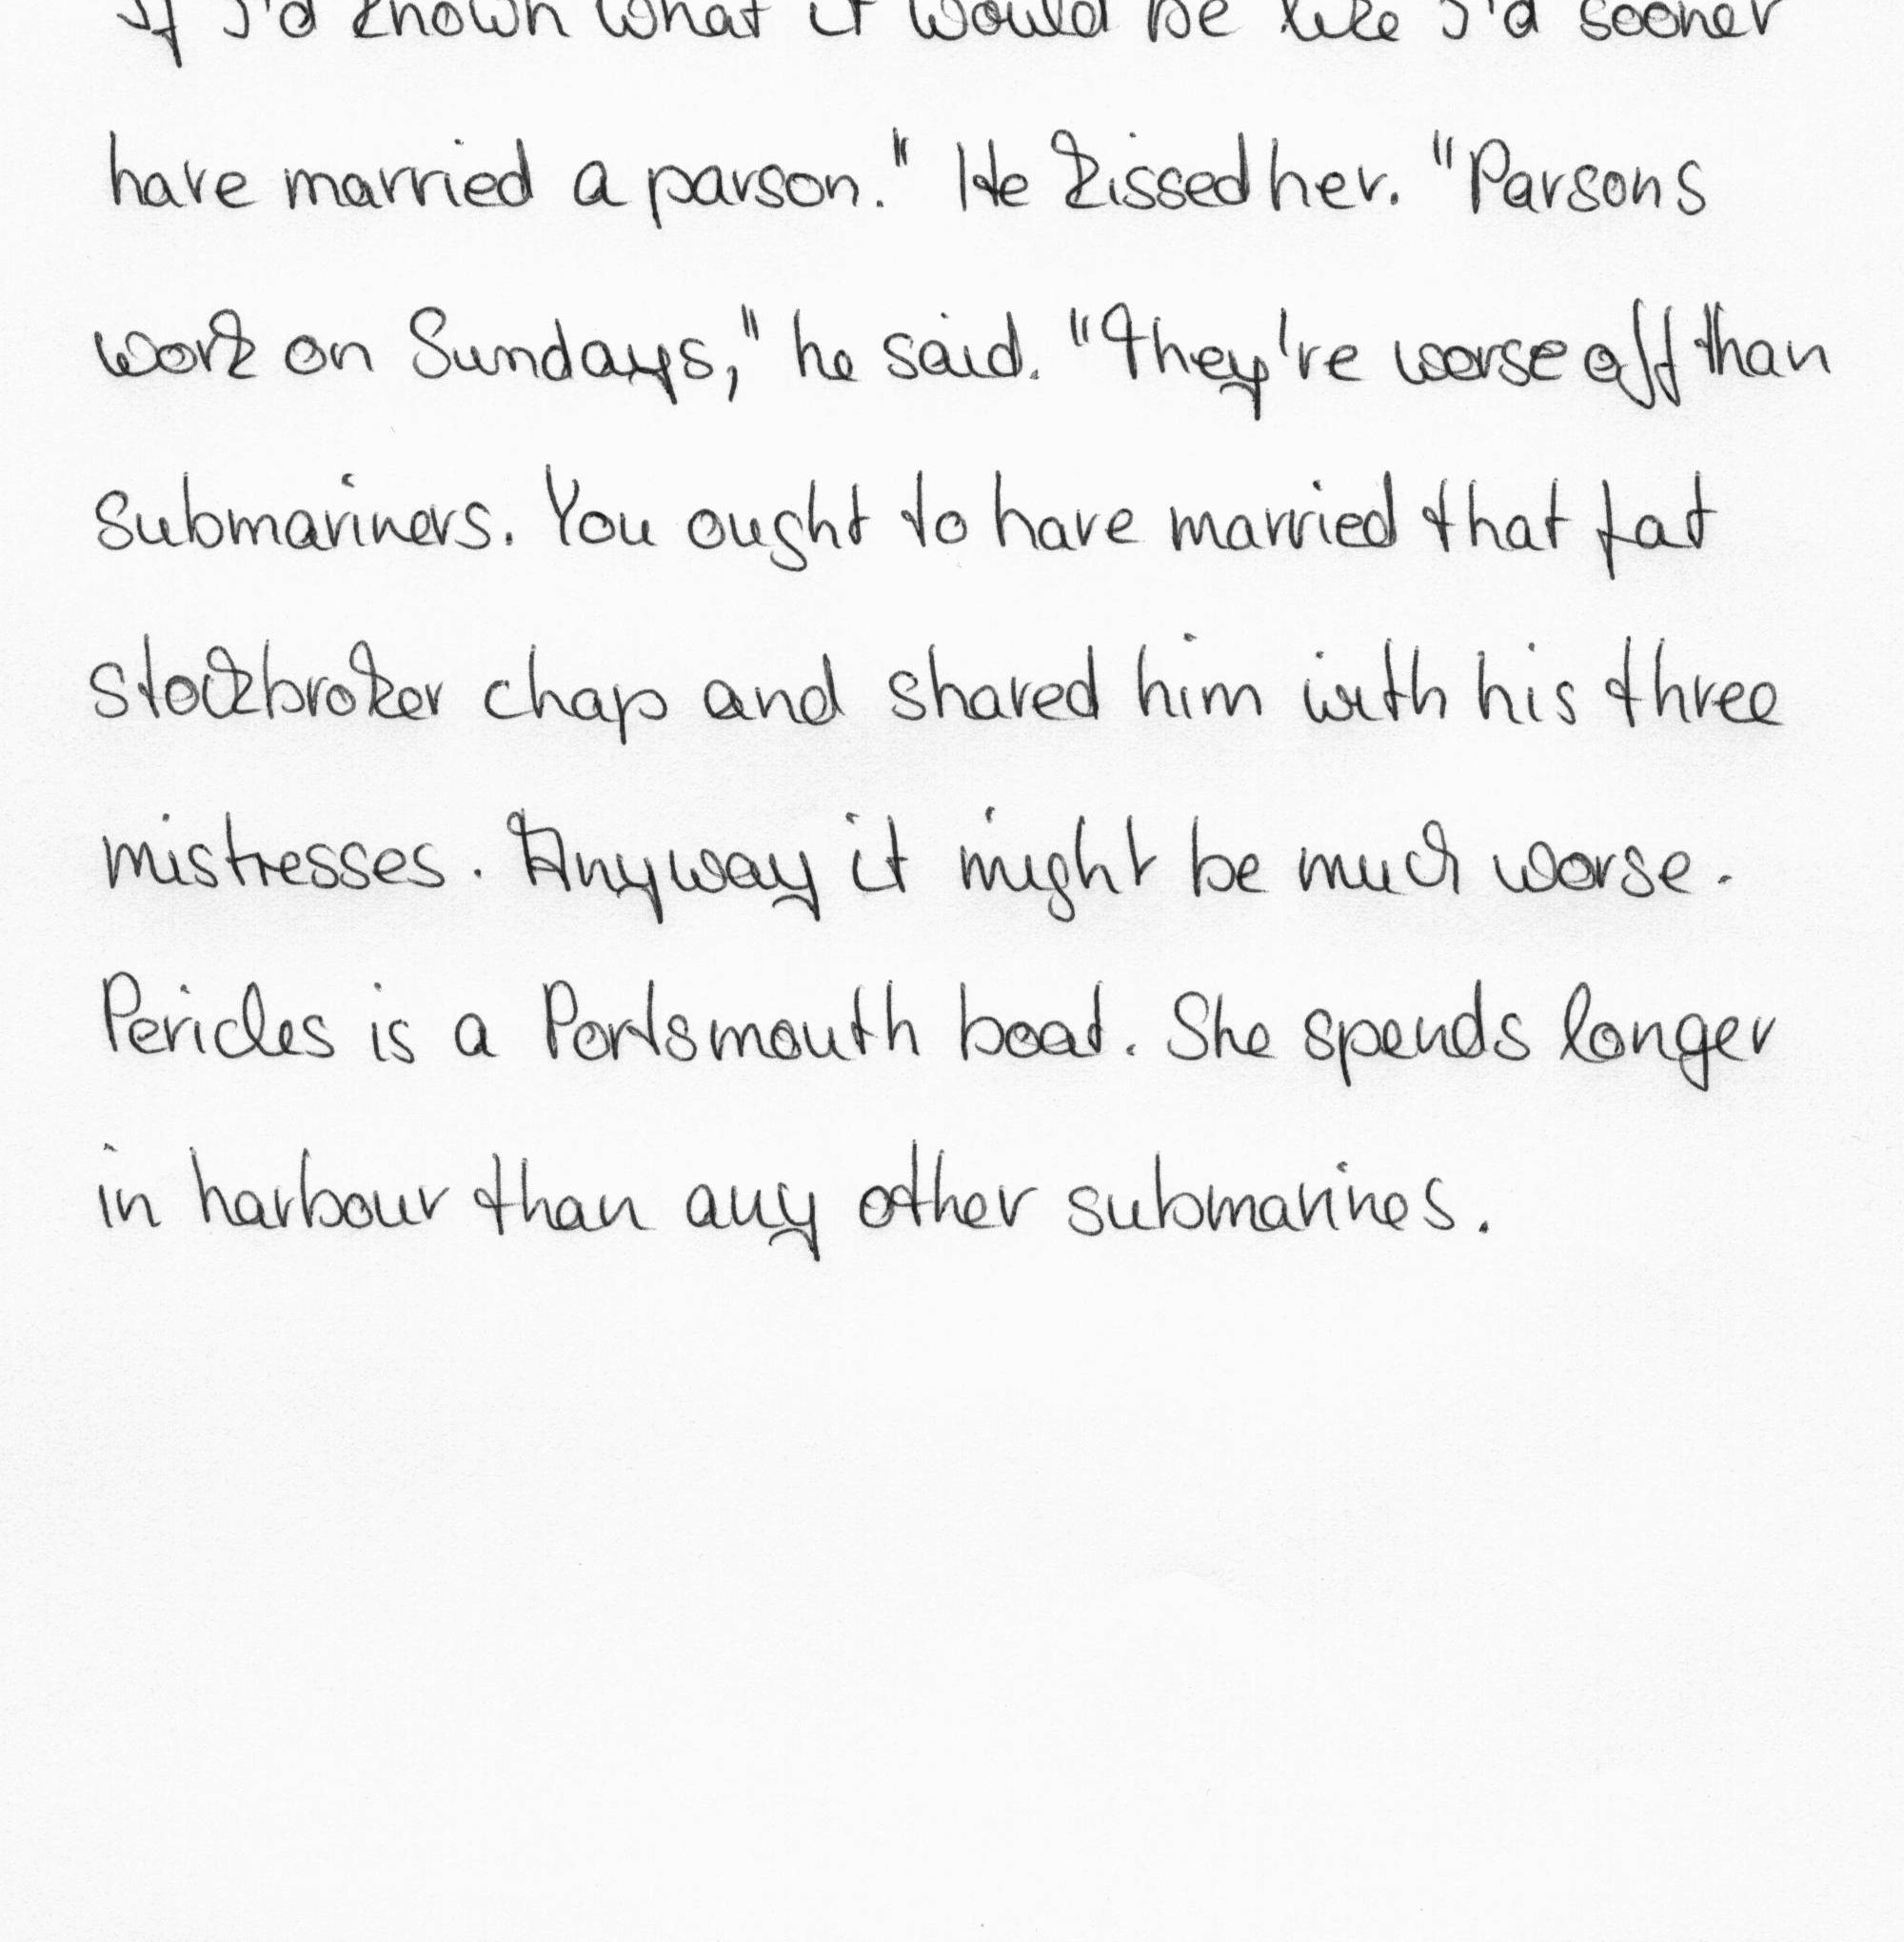 If I'd known what it would be like I'd sooner
have married a parson." He kissed her. "Parsons
work on Sundays," he said. "They're worse off than
submariners. You ought to have married that fat
stockbroker chap and shared him with his three
mistresses. Anyway it might be much worse.
Pericles is a Portsmouth boat. She spends longer
in harbour than any other submarines.